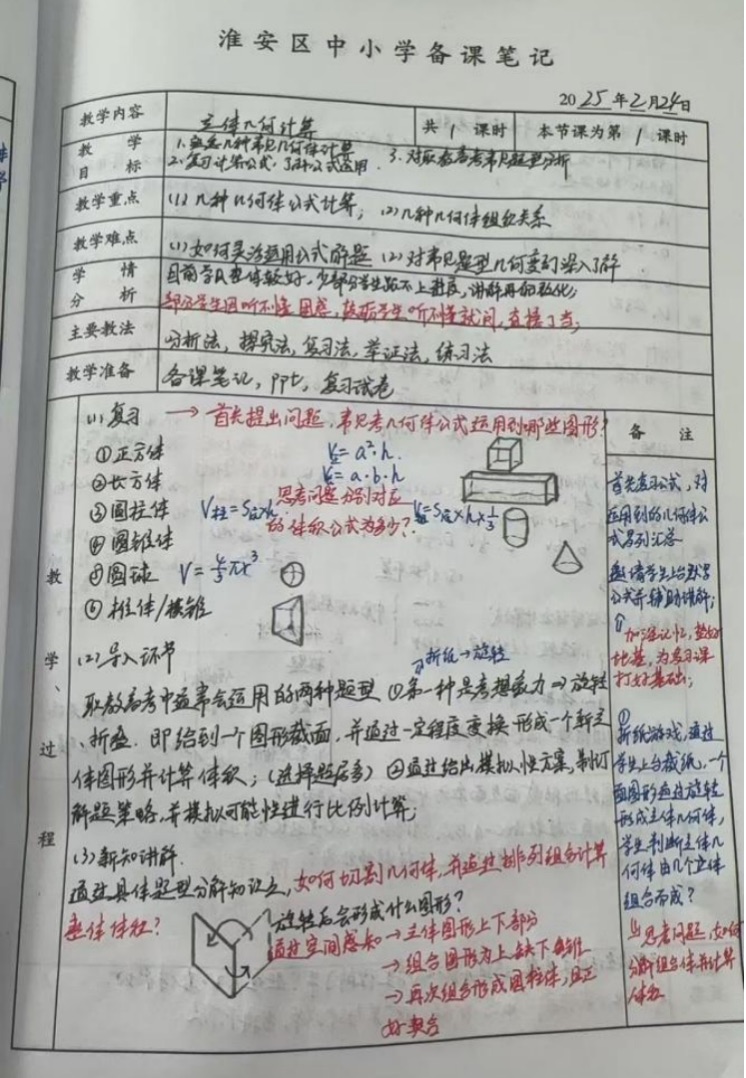 淮安区中小学备课笔记
2025年2月24日
教学内容 立体几何计算 共1课时 本节课为第1课时
教学目标 1.熟悉几种常见几何体计算
2.复习计算公式,了解公式运用. 3.对职教高考常见题型分析
教学重点 (1)几种几何体公式计算;(2)几种几何体组织关系
教学难点 (1)如何灵活运用公式解题 (2)对常见题型几何变幻深入了解
学情分析 目前学员整体较好,少部分学生跟不上进度,讲解再细致化;
部分学生因听不懂困惑,鼓励学生听不懂就问,直接了当;
主要教法 分析法,探究法,复习法,举证法,练习法
教学准备 备课笔记,ppt,复习试卷
教学、过程
备注
(1)复习 → 首先提出问题,常见考几何体公式运用到哪些图形?
①正方体 V=a²·h.
②长方体 V=a·b·h
思考问题分别对应
③圆柱体 V柱=S底×h 的体积公式为多少? V=S底×h×1/3
④圆锥体
⑤圆球 V=4/3πr³
⑥柱体/棱锥
(2)导入环节 折纸→旋转
职教高考中经常会运用的两种题型 ①第一种是考想象力⇒旋转
、折叠.即给到一个图形截面,并通过一定程度变换形成一个新立
体图形并计算体积;(选择题居多) ②通过给出模拟性方案,制订
解题策略,并模拟可能性进行比例计算;
(3)新知讲解.
通过具体题型分解知识点,如何切割几何体,并通过排列组合计算
整体体积?
旋转后会形成什么图形?
通过空间感知→立体图形上下部分
→组合图形为上缺下
→再次组合形成圆柱体,且正
好契合
首先复习公式,对
运用到的几何体公
式罗列汇总
邀请学生上台默写
公式并辅助讲解;
加深记忆,垫好
地基,为复习课
打好基础;
折纸游戏,通过
学生上台裁纸,一个
面图形通过旋转
形成立体几何体,
学生判断立体几
何体由几个立体
组合而成?
思考问题,如何
分解组合体并计算
体积